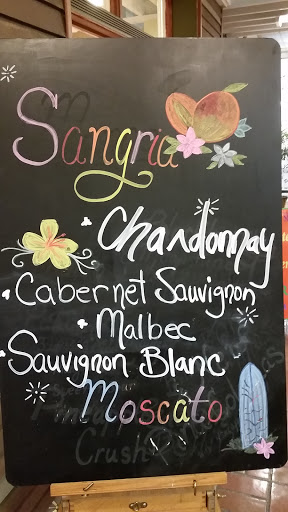 Sangria
• Chardonnay
• Cabernet Sauvignon
• Malbec
• Sauvignon Blanc
Moscato
Crush